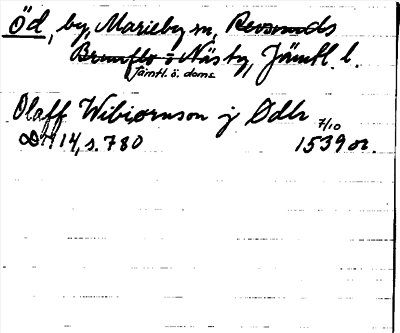 Öd, by, Marieby sn, Revsunds
Brunflo o Näs tg, Jämtl. l.
Jämtl. ö. doms.
Olaff Wibiornson j Ödh 7/10
DN 14, s. 780 1539 or.